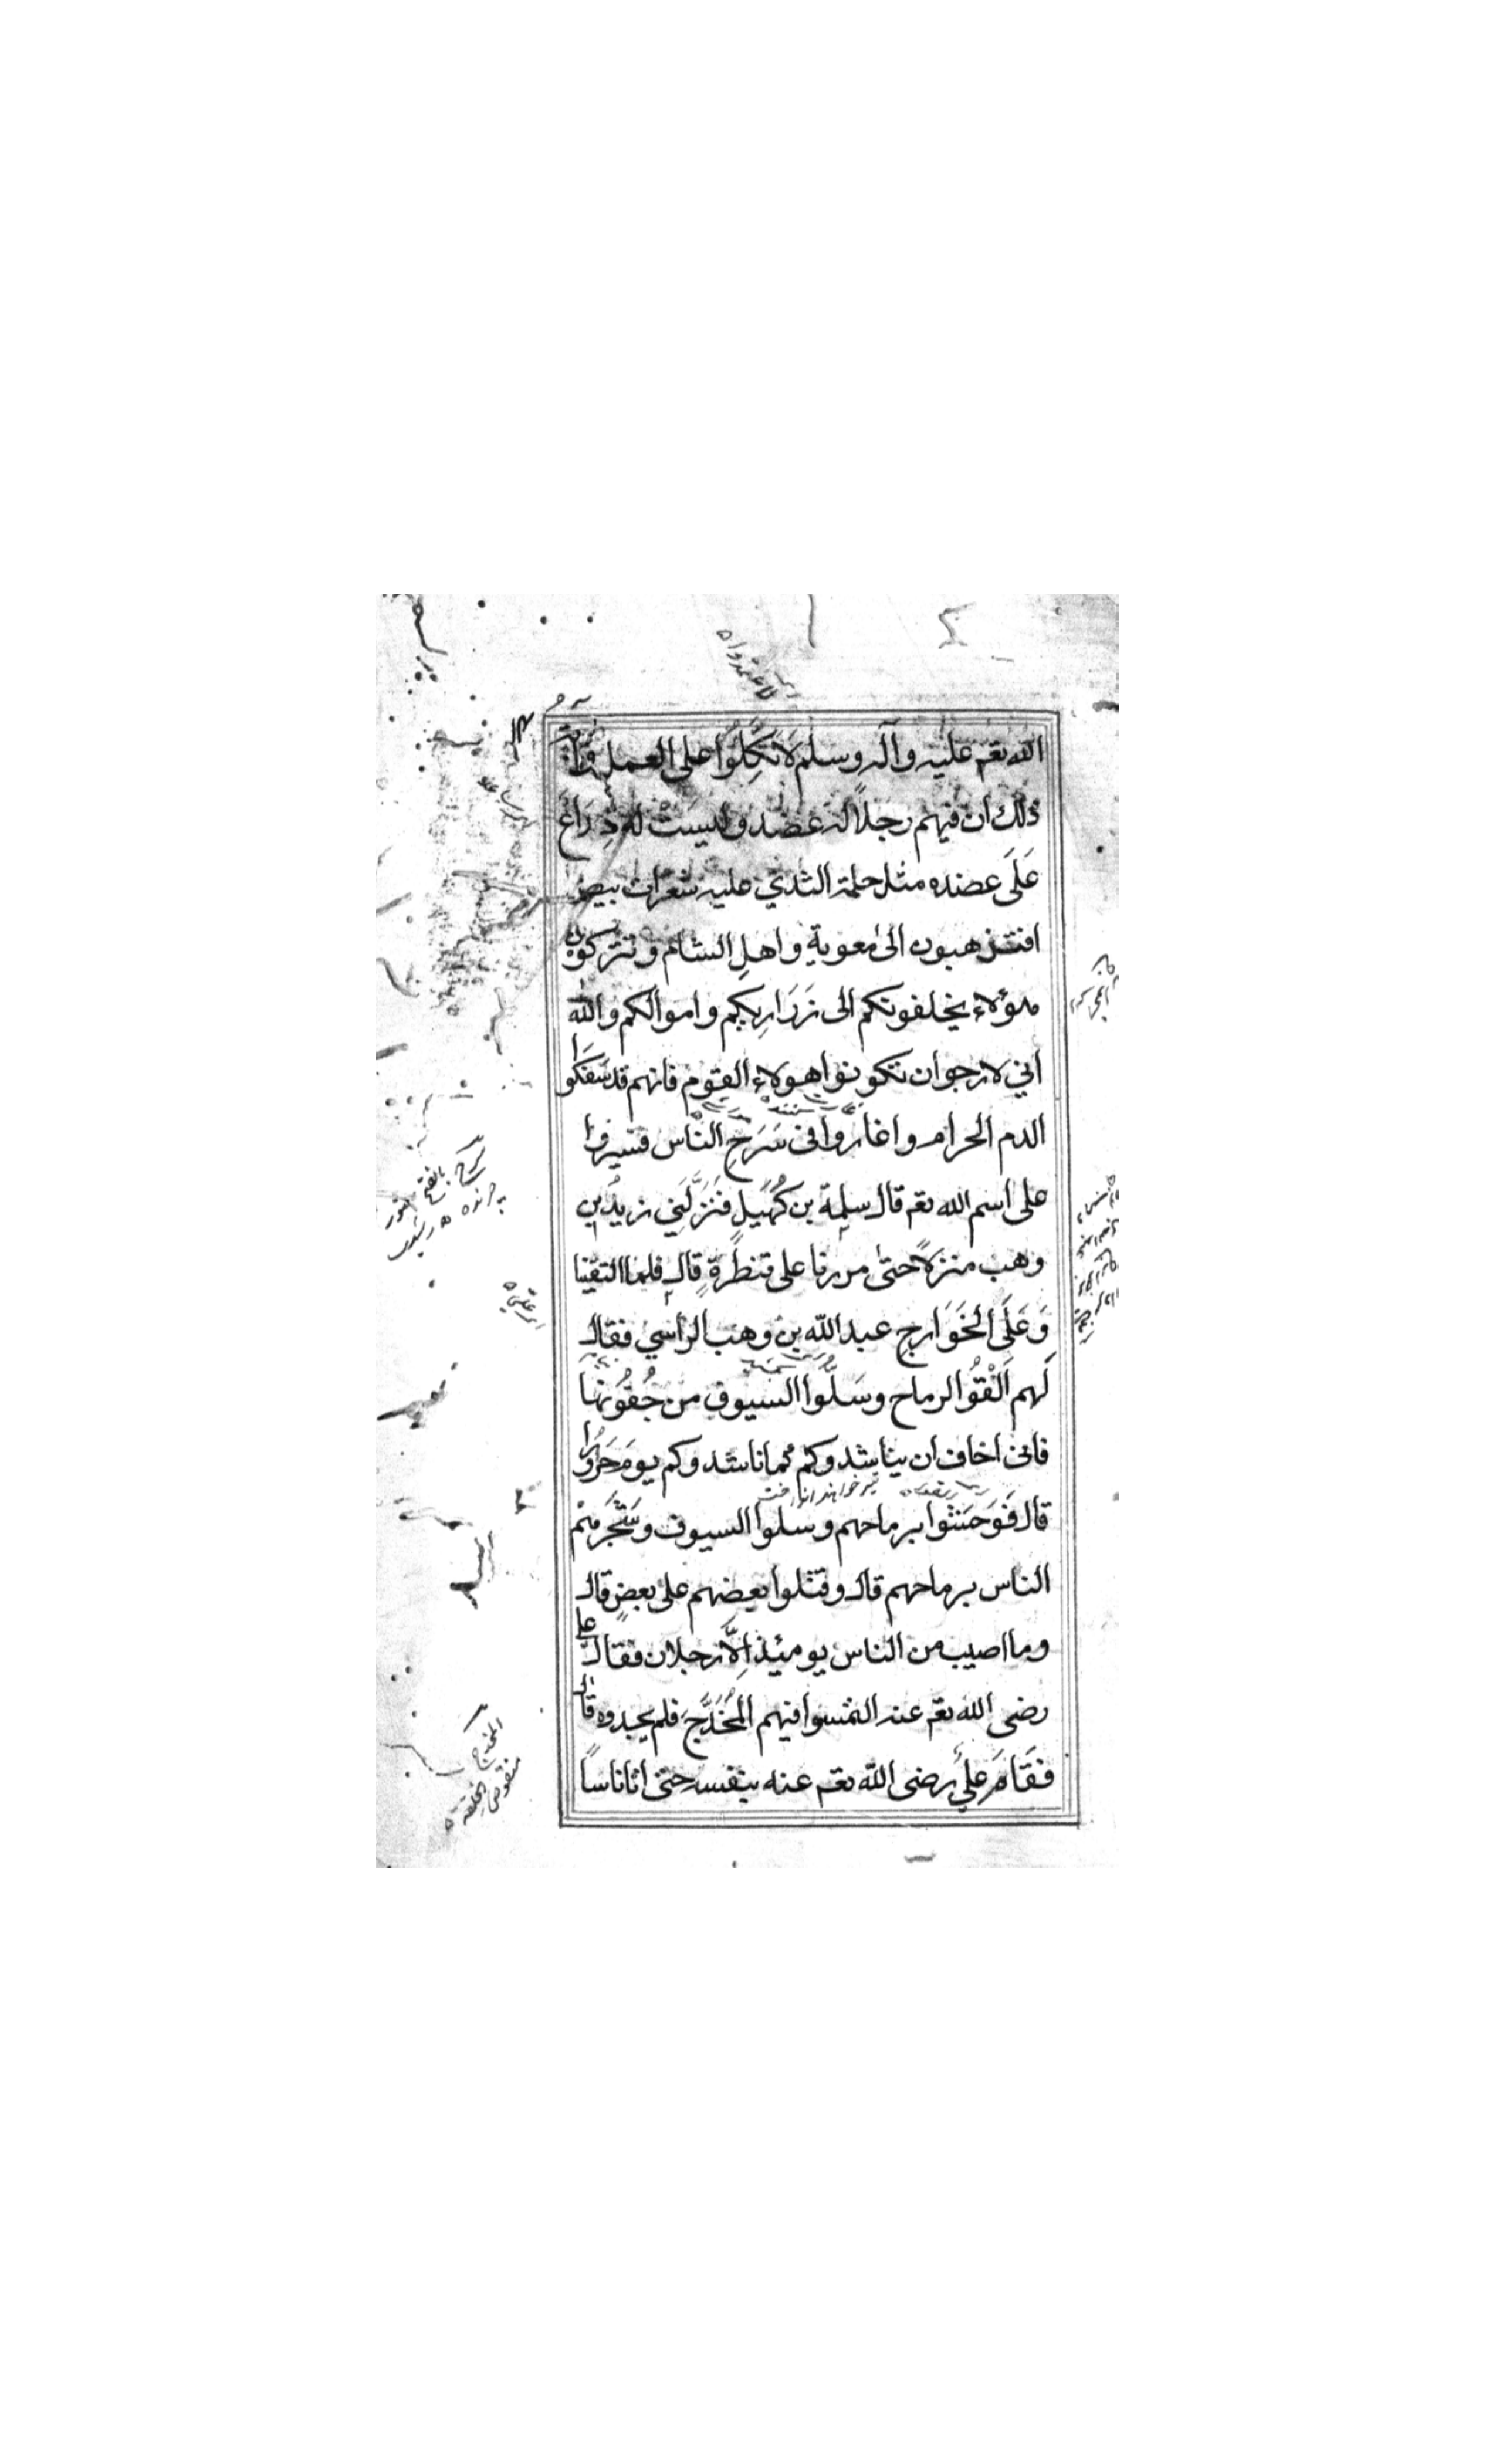 الله تعم عليه وآله وسلم لاتكلوا على العمل وآية
ذلك ان فيهم رجلا له عضد وليست له ذراع
على عضده مثل حلمة الثدي عليه شعرات بيض
افتذهبون الى معوية واهل الشام وتتركون
هؤلاء يخلفونكم الى زراريكم واموالكم والله
اني لارجوان تكونوا هولاء القوم فانهم قد سفكوا
الدم الحرام واغاروا فى سرح الناس فسيروا
على اسم الله تعم قال سلمة بن كهيل فنزلني زيد بن
وهب منزلا حتى مررنا على قنطرة قال فلما التقينا
وعلى الخوارج عبد الله بن وهب الراسي فقال
لهم القوا الرماح وسلوا السيوف من جفونها
فانى اخاف ان يناشدوكم كما ناشدوكم يوم حرورا
قال فوحشوا برماحهم وسلوا السيوف وشجرهم
الناس برماحهم قال وقتلوا بعضهم على بعض قال
وما اصيب من الناس يومئذ الا رجلان فقال على
رضى الله تعم عنه التمسوا فيهم المخدج فلم يجدوه قال
فقام علي رضى الله تعم عنه بنفسه حتى اتا ناسا
المخدج
منقوص الخلقة